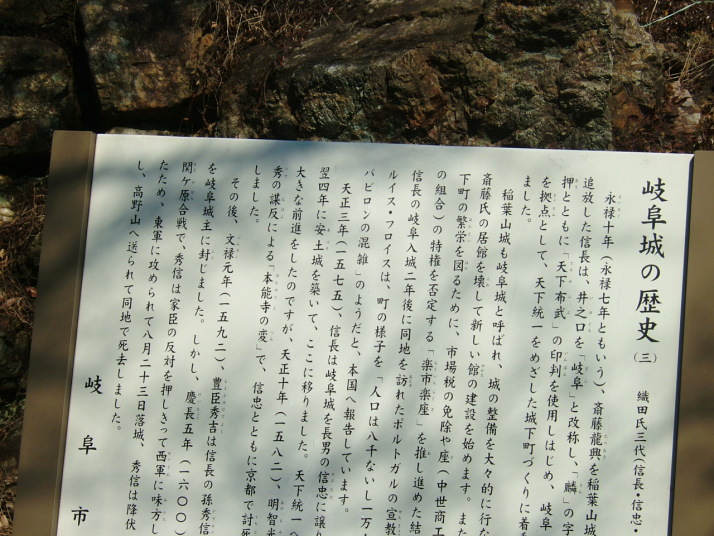 岐阜城の歴史（三）　織田氏三代（信長・信忠・
永禄十年（永禄七年ともいう）、斎藤龍興を稲葉山城
追放した信長は、井之口を「岐阜」と改称し、「麟」の字
押とともに「天下布武」の印判を使用しはじめ、岐阜
を拠点として、天下統一をめざした城下町づくりに着
ました。
稲葉山城も岐阜城と呼ばれ、城の整備を大々的に行な
斎藤氏の居館を壊して新しい館の建設を始めます。また
下町の繁栄を図るために、市場税の免除や座（中世商工
の組合）の特権を否定する「楽市楽座」を推し進めた結
信長の岐阜入城二年後に同地を訪れたポルトガルの宣教
ルイス・フロイスは、町の様子を「人口は八千ないし一万
バビロンの混雑」のようだと、本国へ報告しています。
天正三年（一五七五）、信長は岐阜城を長男の信忠に譲り
翌四年に安土城を築いて、ここに移りました。天下統一へ
大きな前進をしたのですが、天正十年（一五八二）、明智光
秀の謀反による「本能寺の変」で、信忠とともに京都で討死
しました。
その後、文禄元年（一五九二）、豊臣秀吉は信長の孫秀信
を岐阜城主に封じました。しかし、慶長五年（一六〇〇）
関ケ原合戦で、秀信は家臣の反対を押しきって西軍に味方し
たため、東軍に攻められて八月二十三日落城、秀信は降伏
し、高野山へ送られて同地で死去しました。
岐阜市